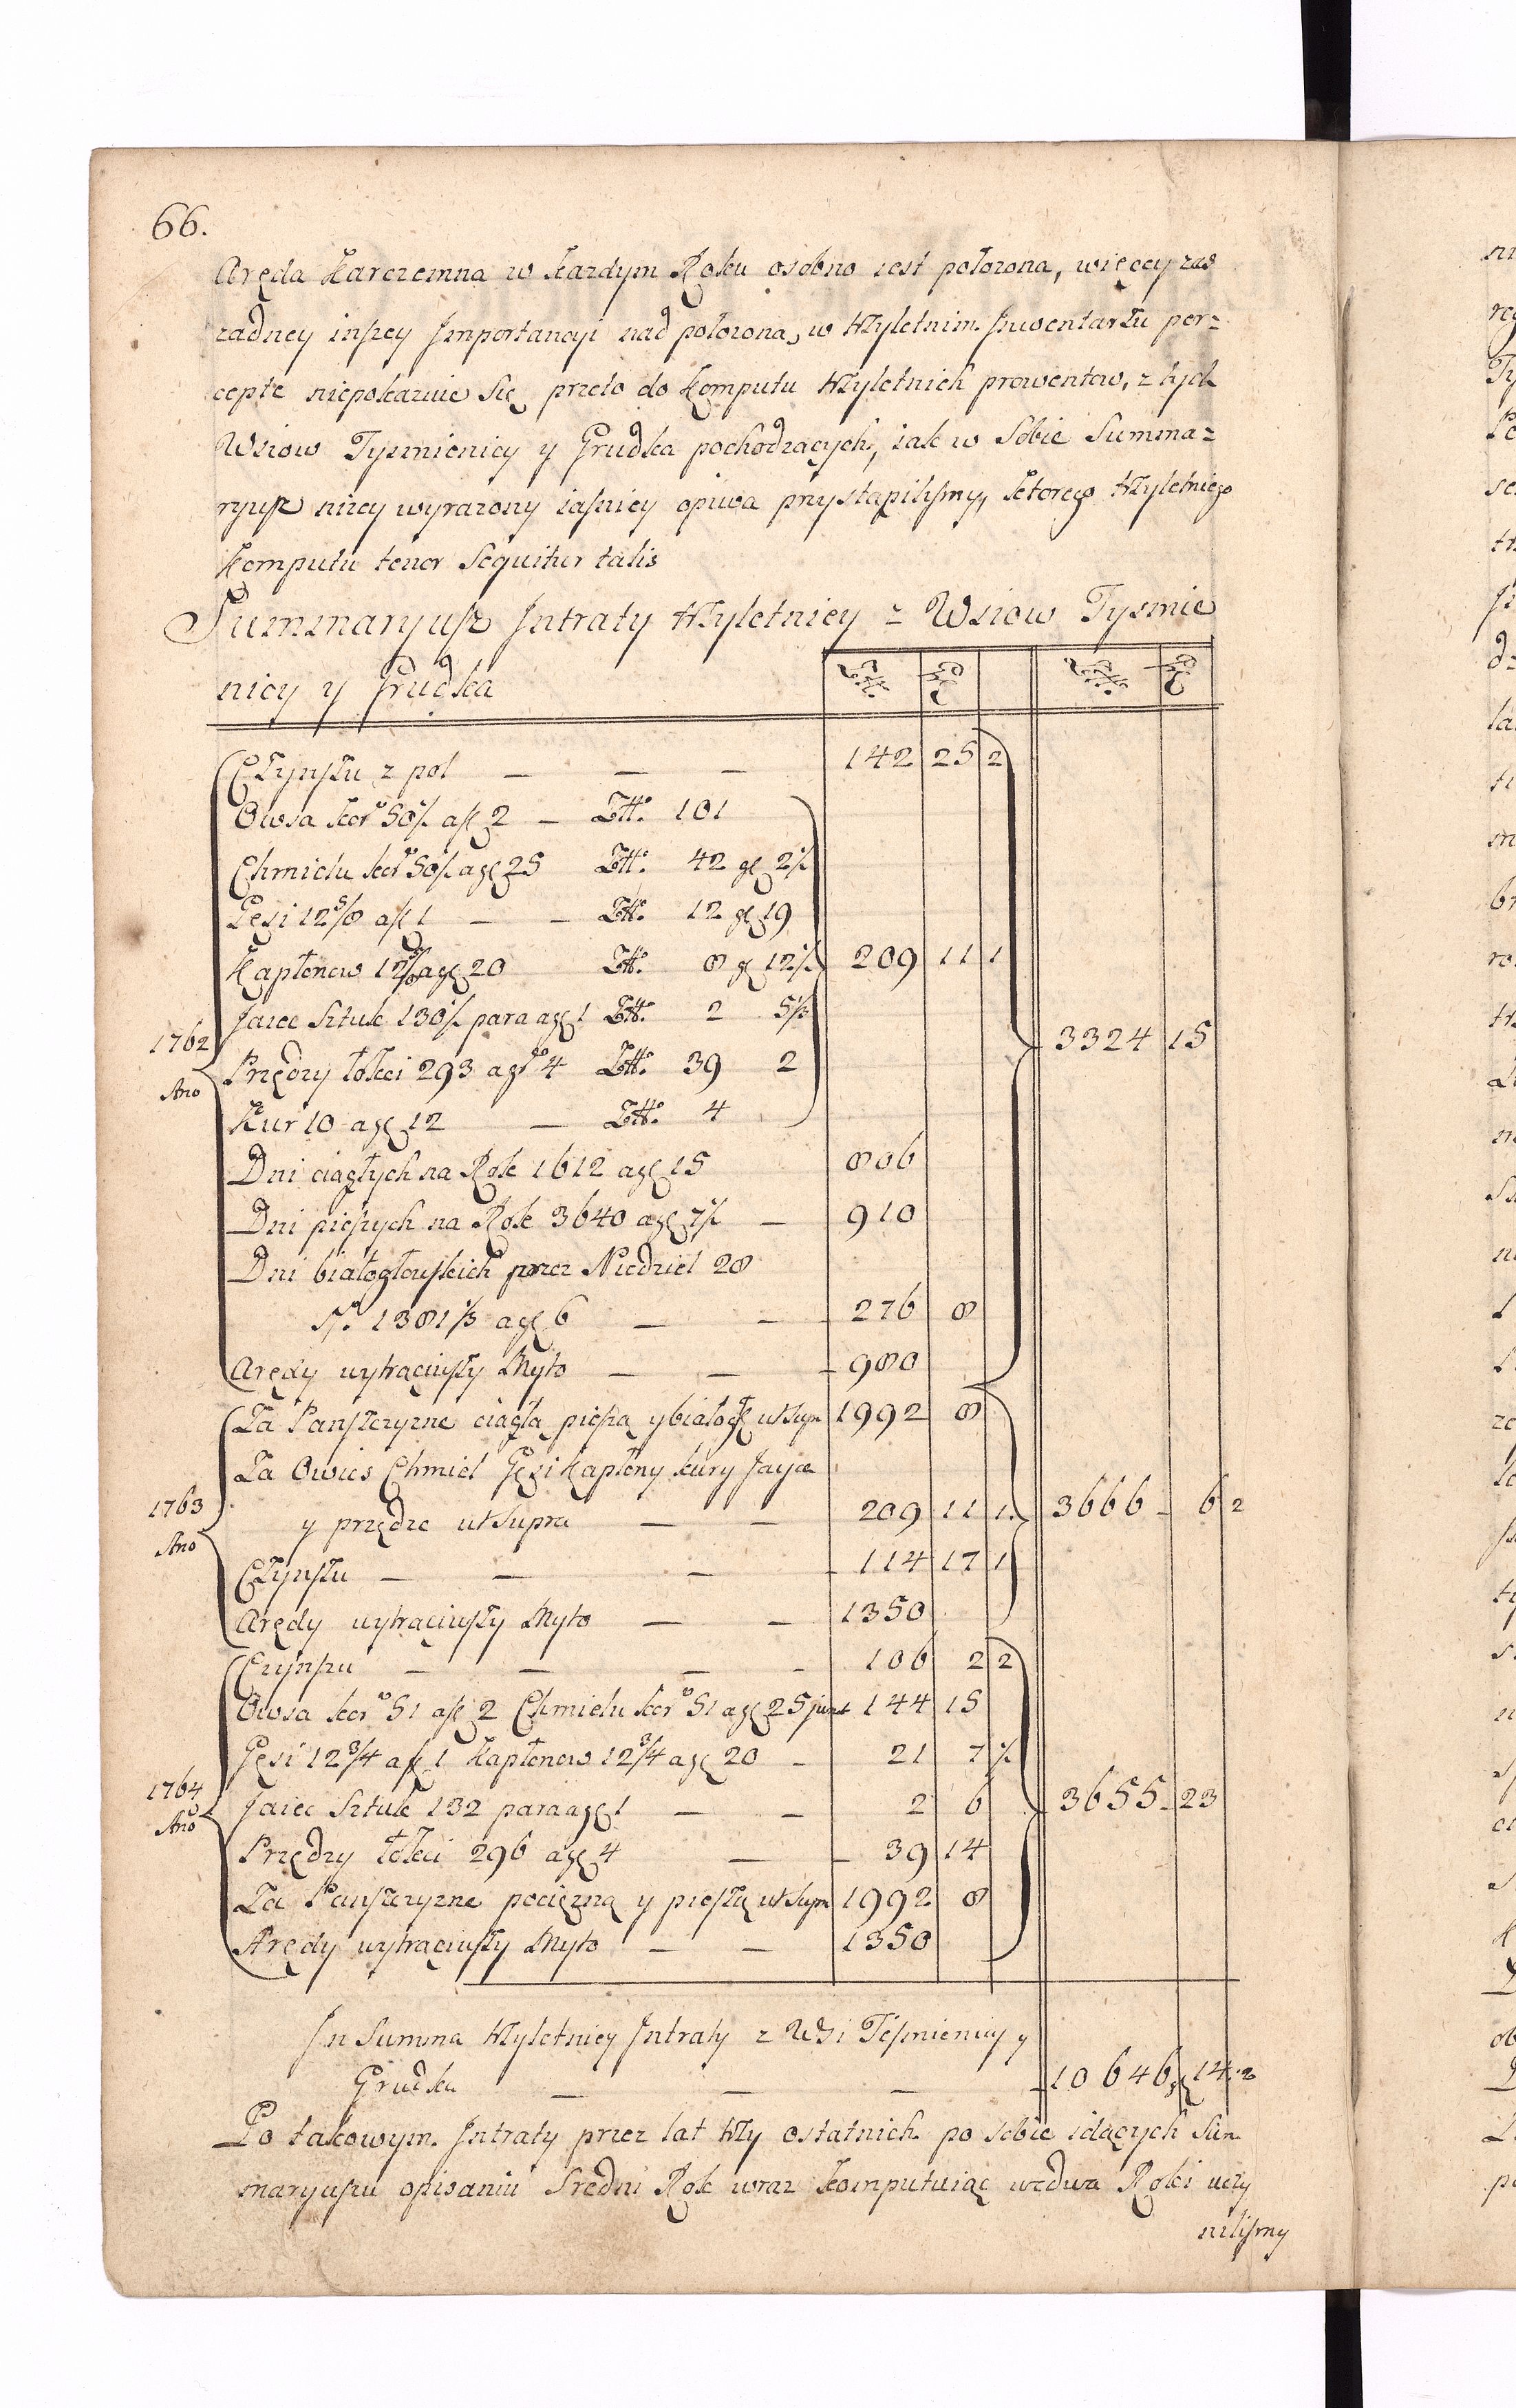 66.
Aręda Karczemna w kazdym Roku osobno iest położona, więcey zas
zadney inszey Importancyi nad położoną, w trzyletnim Inwentarzu per=
cepte niepokazuie Się, przeto do Komputu trzyletnich prowentow, z tych
Wsiow Tysmienicy y Grudka pochodzących, iak w Sobie Summa=
ryusz nizey wyrazony iasniey opiwa przystąpilismy, ktorego trzyletniego
Komputu tenor Sequitur talis
Summaryusz Intraty trzyletniey z Wsiow Tysmie
nicy y Grudka
Czynszu z pol — — — 142 25 2
Owsa kor 50½ a fl 2 — Zł. 101
Chmielu kor 50½ a gl 25 Zł. 42 gl 2½
Gęsi 12 5/8 a fl 1 — — Zł. 12 gl 19
Kapłonow 12 5/8 a gl 20 Zł. 8 gl 12½ 209 11 1
Jaiec Sztuk 130½ para a gl 1 Zł. 2 5½
1762 Ano 3324 15
Przędzy łokci 293 a gl 4 Zł. 39 2
Kur 10 a gl 12 — Zł. 4
Dni ciągłych na Rok 1612 a gl 15 806
Dni pieszych na Rok 3640 a gl 7½ — 910
Dni białogłowskich przez Niedziel 28
No. 1381⅓ a gl 6 — — 276 8
Arędy wytrąciwszy Myto — — 980
Za Panszczyzne ciągłą pieszą y białogł ut Supra 1992 8
Za Owies Chmiel Gęsi Kapłony kury Jayca
1763 Ano
y przędze ut Supra — — 209 11 1 3666 – 6 2
Czynszu — — — 114 17 1
Arędy wytrąciwszy Myto — — 1350
Czynszu — — — – 106 2 2
Owsa kor 51 a fl 2 Chmielu kor 51 a gl 25 junct 144 15
Gęsi 12¾ a fl 1 Kapłonow 12¾ a gl 20 – 21 7 ½
1764 Ano
Jaiec Sztuk 132 para a gl 1 — — 2 6 3655 – 23
Przędzy łokci 296 a gl 4 — – 39 14
Za Panszczyzne pociężną y pieszą ut Supra 1992 8
Arędy wytrąciwszy Myto — — 1350
In Summa trzyletniey Intraty z Wsi Tesmienicy y
Grudka — — — 10646 gl 14 2
Po takowym Intraty przez lat trzy ostatnich po sobie idących Sum
maryuszu opisaniu Sredni Rok wraz komputuiąc we dwa Roki uczy
nilismy